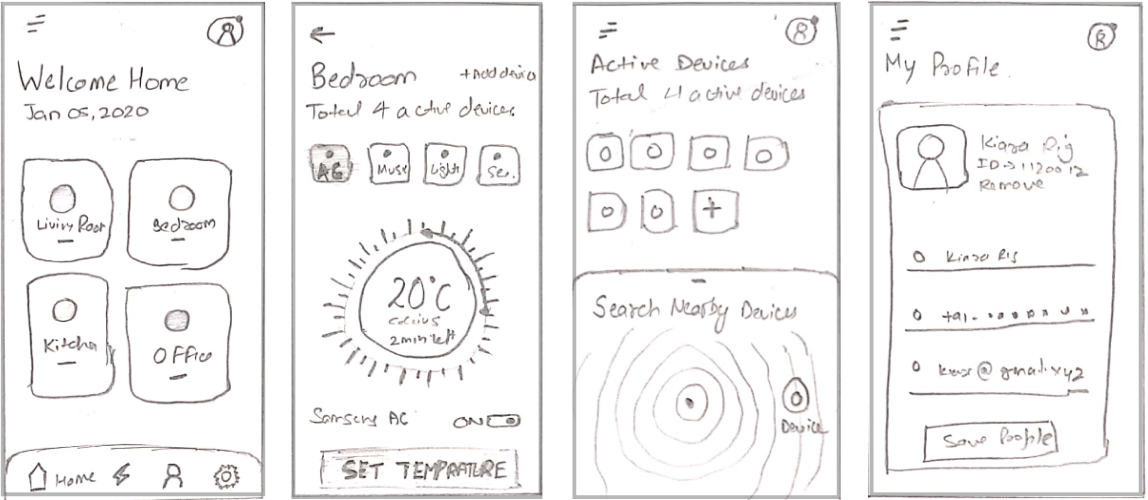 Welcome Home
Jan 05, 2020
Living Room
Bedroom
Kitchen
Office
Home
Bedroom
+Add device
Total 4 active devices
AC
Music
Light
Sec.
20°C
celcius
2 min left
Samsung AC
ON
SET TEMPRATURE
Active Devices
Total 4 active devices
Search Nearby Devices
Device
My Profile
Kiara Rig
Remove
Kiara Rig
Save Profile